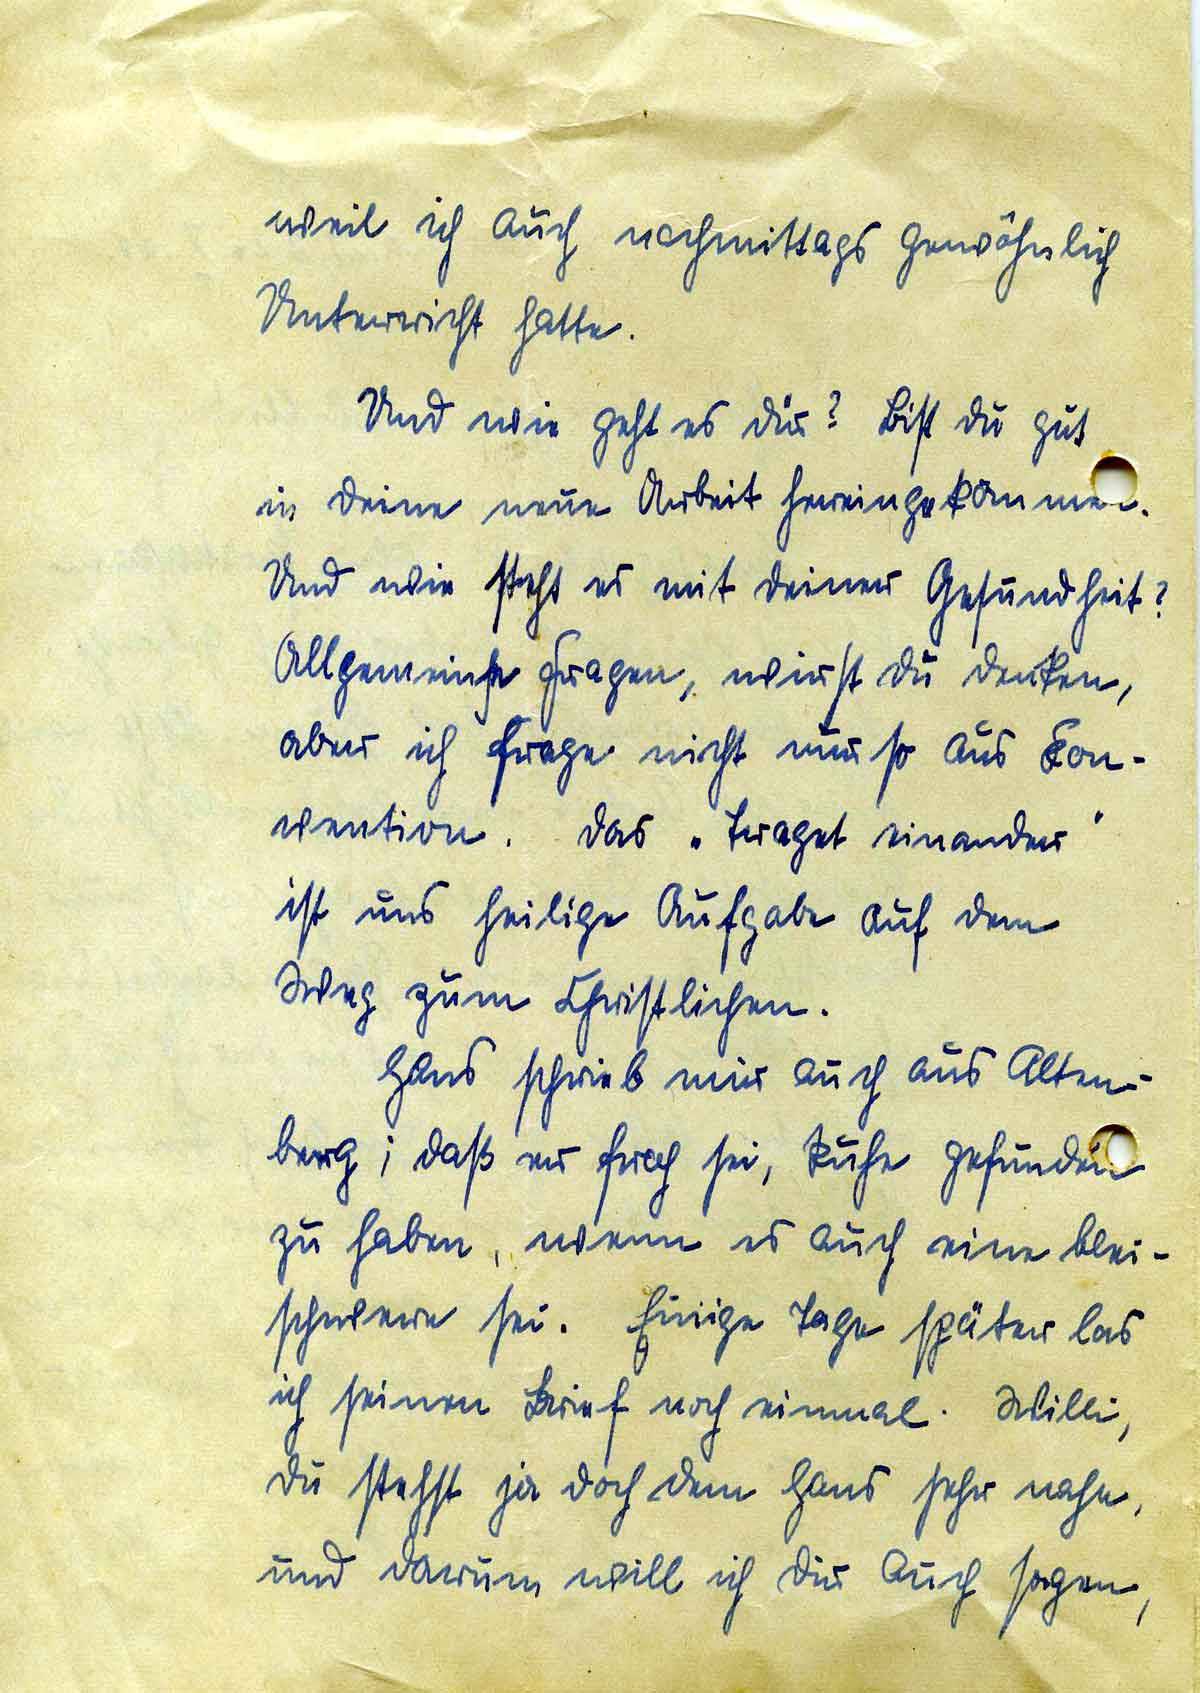 weil ich auch nachmittags gewöhnlich
Unterricht hatte.
Und wie geht es dir? Bist du gut
in deine neue Arbeit hereingekommen.
Und wie steht es mit deiner Gesundheit?
Allgemeine Fragen, wirst du denken,
aber ich frage nicht nur so aus Kon-
vention. Das „Traget einander"
ist uns heilige Aufgabe auf dem
Weg zum Christlichen.
Hans schrieb mir auch aus Alten-
berg; daß er froh sei, Ruhe gefunden
zu haben, wenn es auch eine blei-
schwere sei. Einige Tage später las
ich seinen Brief noch einmal. Willi,
du stehst ja doch dem Hans sehr nahe,
und darum will ich dir auch sagen,